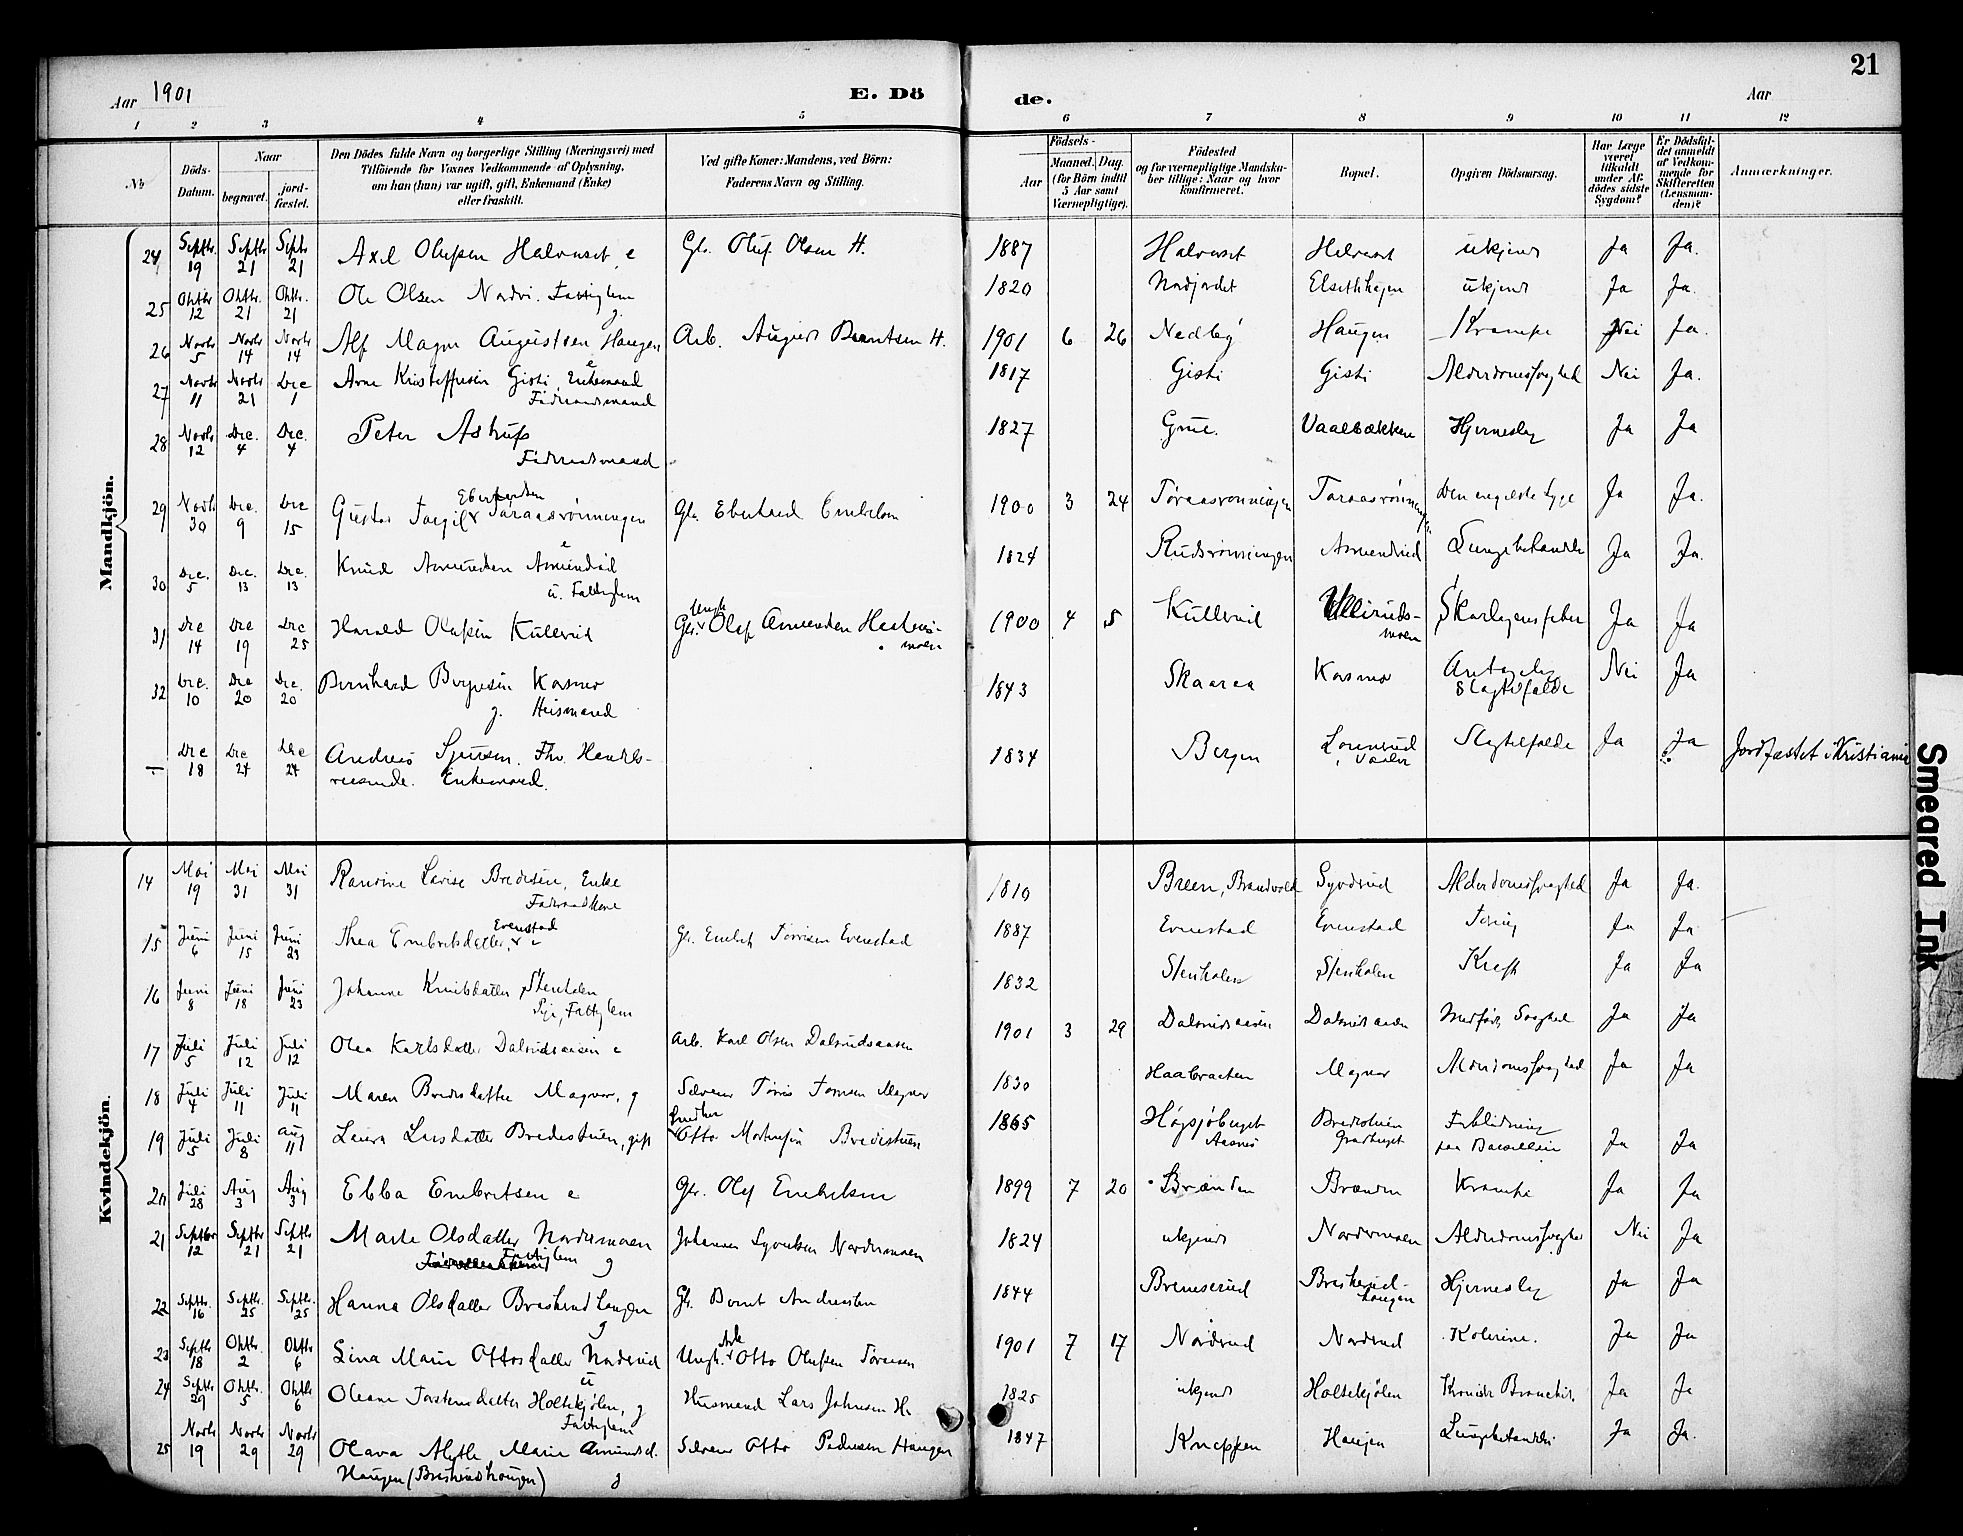 21
Aar 1901
E. Dö
de.
Aar
1 2 3 4 5 6 7 8 9 10 11 12
No
Döds-Datum.
Naar
begravet.
jord-fæstet.
Den Dödes fulde Navn og borgerlige Stilling (Næringsvei) med
Tilföiende for Voxnes Vedkommende af Oplysning,
om han (hun) var ugift, gift, Enkemand (Enke)
eller fraskilt.
Ved gifte Koner: Mandens, ved Börn:
Faderens Navn og Stilling.
Födsels-
Aar
Maaned. Dag.
(for Börn indtil
5 Aar samt
Værnepligtige).
Födested
og for værnepligtige Mandska-
ber tillige: Naar og hvor
konfirmeret.
Bopæl.
Opgiven Dödsaarsag.
Har Læge
været
tilkaldt
under Af-
dödes sidste
Sygdom?
Er Dödsfal-
det anmeldt
af Vedkom-
mende for
Skifteretten
(Lensman-
den)?
Anmærkninger.
Mandkjön.
24 Septbr. 19 Septbr 21 Septbr 21 Axel Olufsen Halvorset, e Gb. Oluf Olsen H. 1887 Halvorset Halvorset ukjendt Ja Ja.
25 Oktbr 12 Oktbr. 21 Oktbr. 21 Ole Olsen Nordvi. Fattiglem g. 1820 Nordjordet Elsethhagen ukjendt Ja Ja.
26 Novbr 5 Novbr 14 Novbr 14 Alf Magne Augustsen Haugen e Arb. August Berntsen H. 1901 6 26 Nedby Haugen Krampe Nei Ja.
27 Novbr 11 Novbr 21 Dec 1 Arne Kristoffersen Gisti, Enkemand Föderaadsmand 1817 Gisti Gisti Alderdomssvaghed Nei Ja.
28 Novbr 12 Dec. 4 Dec. 4 Peter Astrup Föderaadsmand 1827 Grue. Vaalbækken Hjerneslag Ja Ja
29 Novbr 30 Dec. 9 Dec 15 Gustav Torgils Eberhardsen Toraasrönningen Gb. Eberhard Embretsen 1900 3 24 Toraasrönningen Toraasrönningen Den engelske Syge Ja Ja.
30 Dec. 5 Dec. 13 Dec. 13 Knud Amundsen Amundrud u. Fattiglem 1824 Rudsrönningen Amundrud Lungebetændelse Ja Ja.
31 Dec 14 Dec 19 Dec 25 Harald Olafsen Kullerud Ungk. Gb. Olaf Amundsen -moen 1900 4 5 Kullerud Ullerudsmoen Skarlagensfeber Ja Ja
32 Dec. 10 Dec 20 Dec. 20 Bernhard Børgesen Kosmo g. Husmand 1843 Skaaraa Kosmo Antagelig Slagtilfælde Nei Ja
— Dec 18 Dec 24 Dec 24 Andreas Sjursen. Fhv. Handelsreisende. Enkemand. 1834 Bergen Lovnrud, Vaaler Slagtilfælde Ja Ja Jordfæstet i Kristiania
Kvindekjön.
14 Mai 19 Mai 31 Mai 31 Randine Lovise Bredesen, Enke Föderaadskone 1810 Breen, Brandvold Syvdrud Alderdomssvaghed Ja Ja.
15 Juni 6 Juni 15 Juni 23 Thea Embretsdatter, Evenstad e Gb. Embret Torresen Evenstad 1887 Evenstad Evenstad Tæring Ja Ja
16 Juni 8 Juni 18 Juni 23 Johanne Knudsdatter Stenholen Pige, Fattiglem 1832 Stenholen Stenholen Kreft Ja Ja
17 Juli 5 Juli 12 Juli 12 Olea Karlsdatter Dalsrudsaasen e Arb. Karl Olsen Dalsrudsaasen 1901 3 29 Dalsrudsaasen Dalsrudsaasen Medfødt Svaghed Ja Ja
18 Juli 4 Juli 11 Juli 11 Maren Bredesdatter Magnor, g Selveier Tørris Magnor 1830 Haabraaten Magnor Alderdomssvaghed Ja Ja
19 Juli 5 Juli 8 Aug 11 Laura Larsdatter Bredestuen, gift Snedker Otto Mortensen Bredestuen 1865 Høgsjöberget Aasnes Bredestuen Forblødning paa Barselseng Ja Ja
20 Juli 28 Aug 3 Aug 3 Ebba Embretsen e Gbr. Olaf Embretsen 1899 7 20 Brænden Brænden Krampe Ja Ja
21 Septbr 12 Septbr 21 Septbr 21 Marte Olsdatter Nordermoen Fattiglem g Johannes Syvertsen Nordermoen 1824 ukjendt Nordermoen Alderdomssvaghed Nei Ja
22 Septbr. 16 Septbr. 25 Septbr. 25 Hanna Olsdatter Braskerudhaugen g Gb. Bernt Andersen 1844 Bremserud Braskerud-haugen Hjerneslag Ja Ja
23 Septbr 18 Oktbr. 2 Oktbr 6 Lina Marie Ottosdatter Nordrud u Ungk. Arb Otto Olufsen 1901 7 17 Nordrud Nordrud Kolerine. Ja Ja
24 Septbr 29 Oktbr. 5 Oktbr 6 Oleane Torstensdatter Holtekjølen, g Fattiglem Husmand Lars Johnsen H. 1825 ukjendt Holtekjølen Kronisk Bronchit. Ja Ja
25 Novbr 19 Novbr 29 Novbr 29 Olava Marie Amundsd. Haugen (Braskerudhaugen) g Selveier Otto Pedersen Haugen 1847 Kneppen Haugen Lungebetændelse Ja Ja.
Smeared Ink